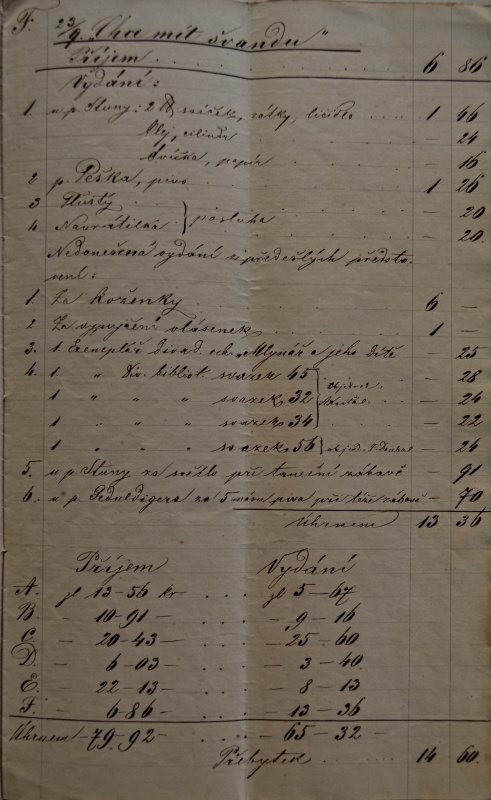 F. 23/9. „Chce mít švandu“
Příjem . . . 6 86
Vydání:
1. u p. Stuny: 2 ℔ svíček, zátky, líčidlo . . . 1 46
Olej, cilindr 24
Svíčka, papír — 16
2 p. Peška, pivo . . . 1 26
3 Tlustý } posluha — 20
4. Navrátilka . . . 20.
Nedonešená vydání z předešlých předsta-
vení:
1. Za Koženky 6 —
2 Za vypůjčení vlásenek . . . 1 —
3. 1 Exemplář divad. och. „Mlynář a jeho dítě — 25
4. 1 „ Div. bibliot. svazek 45 — 28
1 „ „ „ svazek 32 — 24
1 „ „ „ svazek 34 — 22
1 „ „ svazek 56 objed. — 24
5. u p. Stuny za světlo při taneční zábavě — 91
6. u p. za 5 piva při téže zábavě — 70
Úhrnem 13 36
Příjem Vydání
A. zl 13-56 kr . . . zl 5-67
B. — 10-91 — . . . — 9-16
C. — 20-43 — . . . — 25-60
D. — 6-03 — . . . — 3-40
E. — 22-13 — . . . — 8-13
F. — 6-86 — . . . — 13-36
Úhrnem — 79-92 — . . . — 65-32 —
Přebytek . . . 14 60.